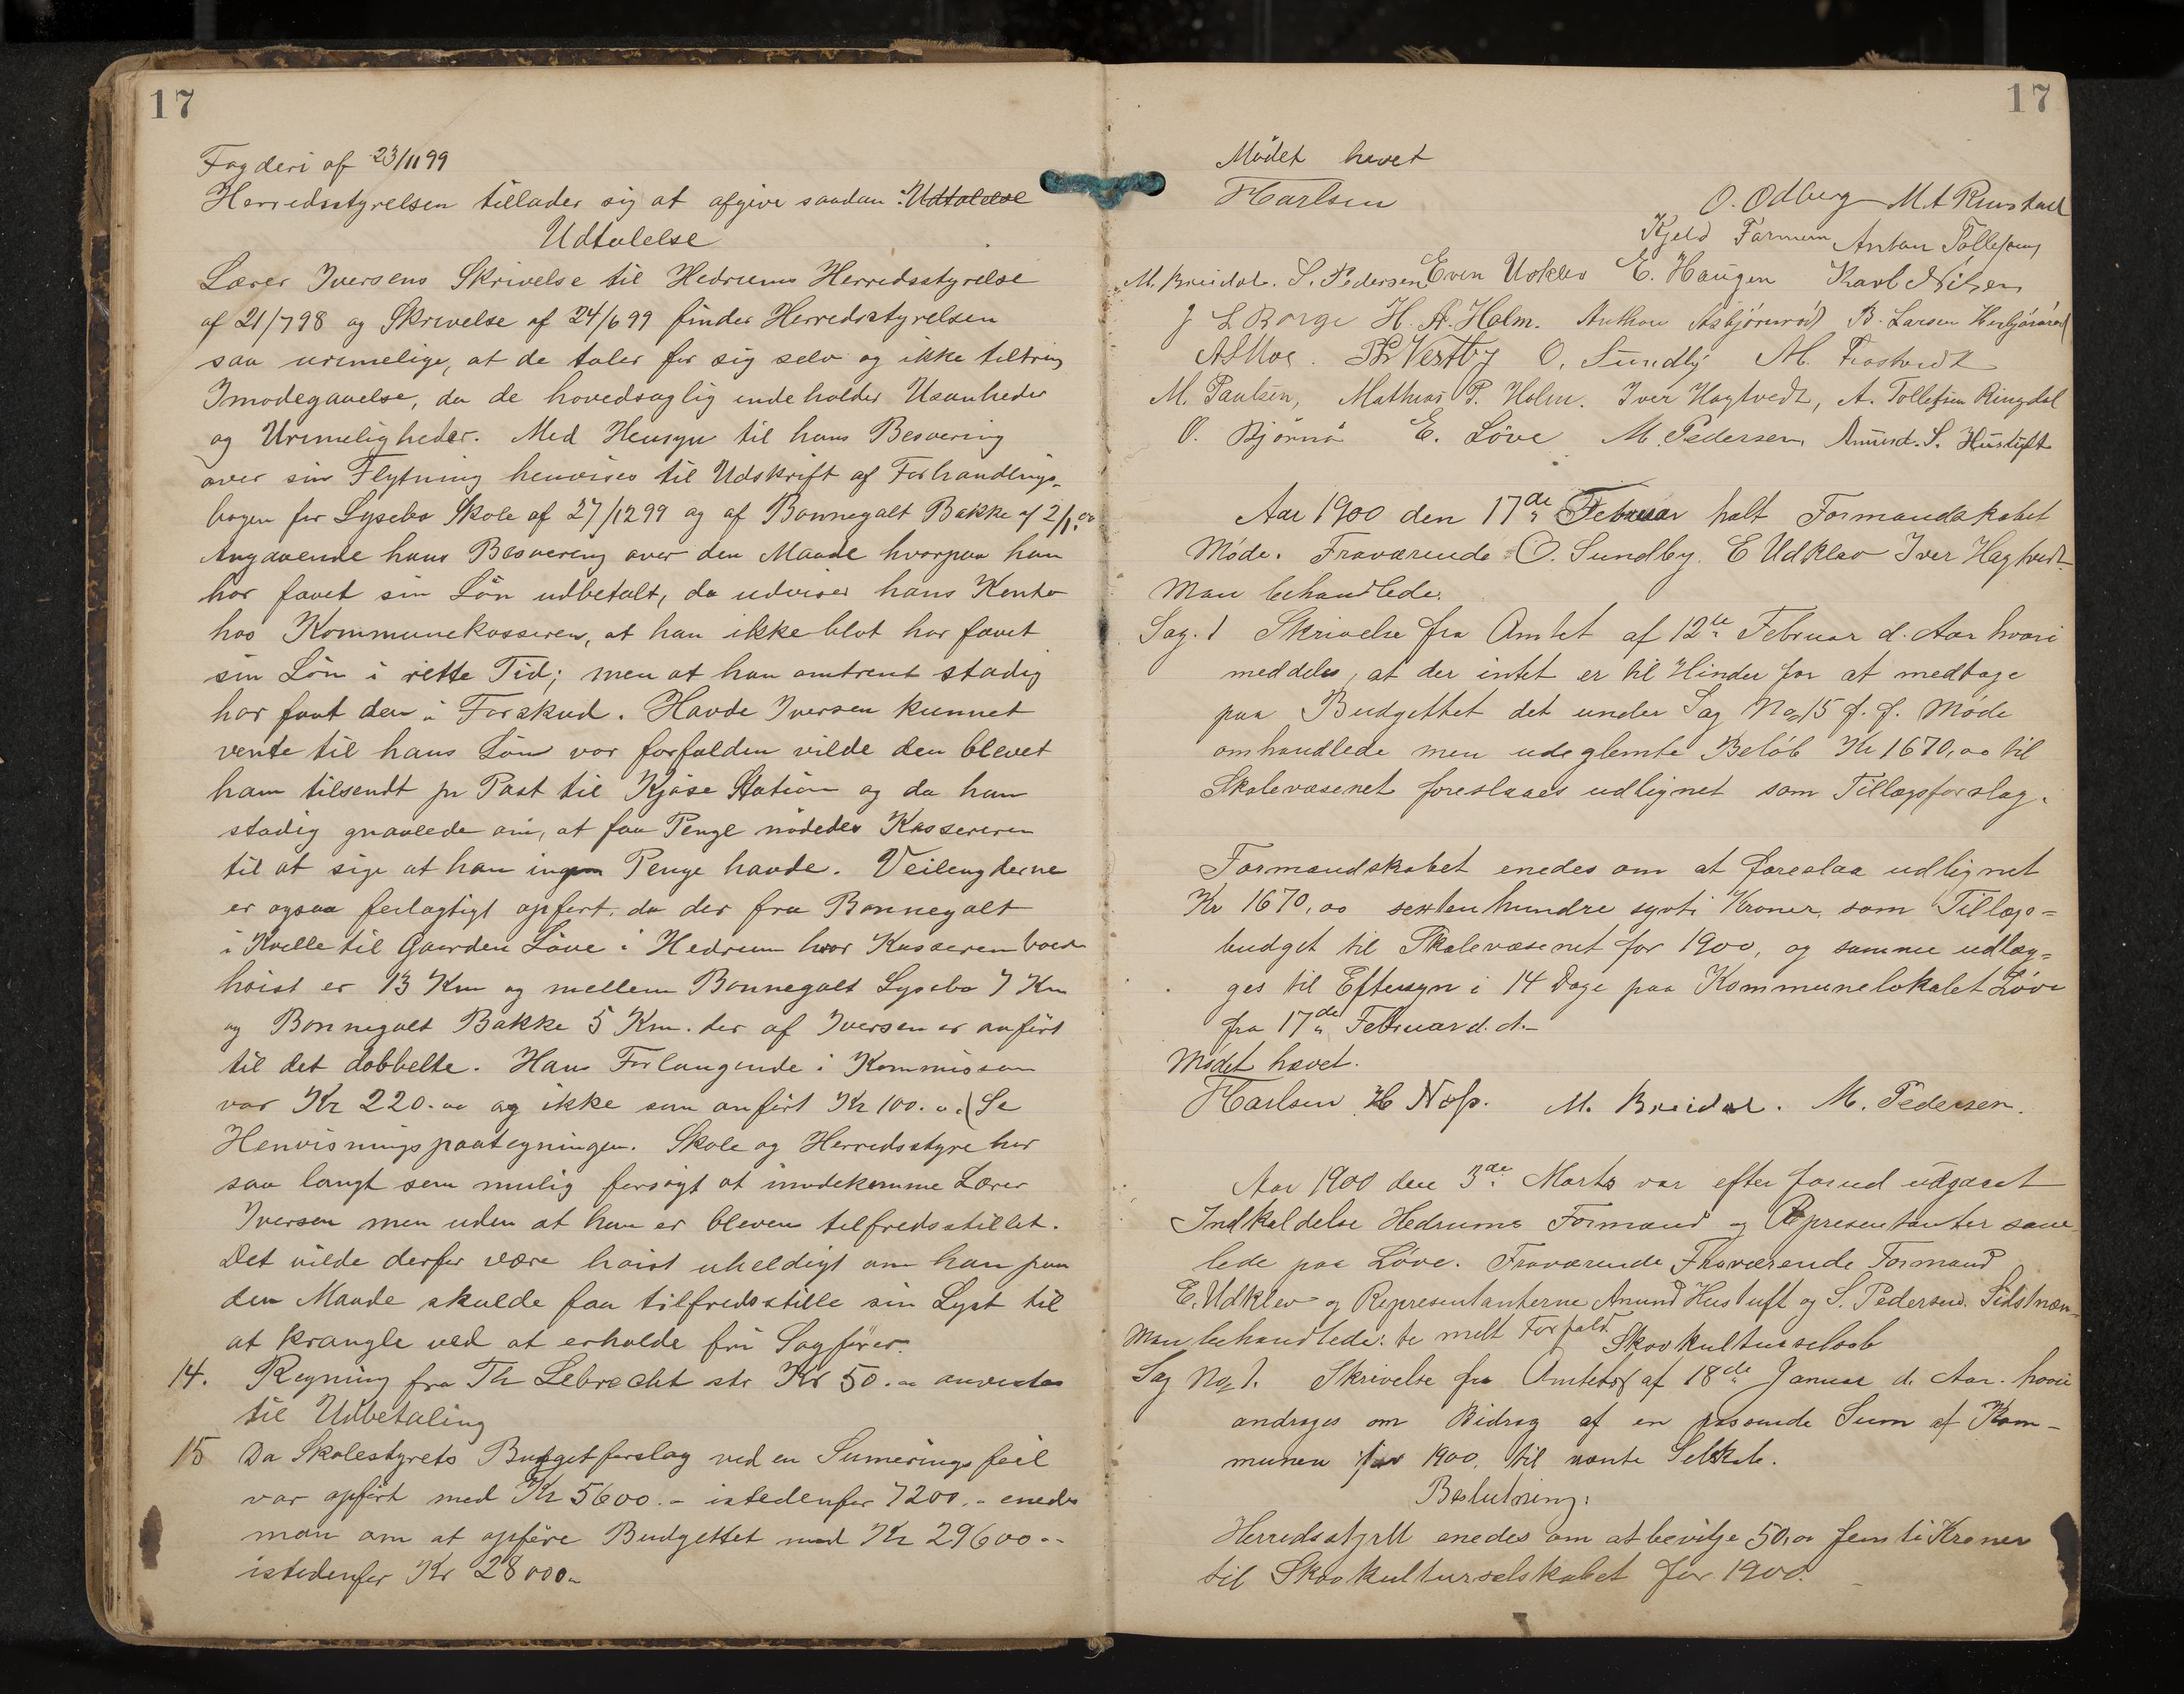 17
Fogderi af 23/11 99
Herredsstyrelsen tillader sig at afgive saadan Udtalelse
Udtalelse
Lærer Iversens Skrivelse til Hedrums Herredsstyrelse
af 21/7 98 og Skrivelse af 24/6 99 finder Herredsstyrelsen
saa urimelige, at de taler for sig selv og ikke
Imødegaaelse, da de hovedsaglig indeholder Usanheder
og Urimeligheder. Med Hensyn til hans Besværing
over sin Flytning henvises til Udskrift af Forhandlings-
bogen for Lysebo Skole af 27/12 99 og af Bonnegolt Bakke af
Angaaende hans Besværing over den Maade hvorpaa han
har faaet sin Løn udbetalt, da udviser hans Konto
hos Kommunekasseren, at han ikke blot har faaet
sin Løn i rette Tid; men at han omtrent stadig
har faat den i Forskud. Havde Iversen kunnet
vente til hans Løn var forfalden vilde den blevet
ham tilsendt pr Post til Kjøse Station og da han
stadig gnaalede om, at faa Penge nødedes Kassereren
til at sige at han ingen Penge havde. Veilengderne
er ogsaa feilagtigt opført, da der fra Bonnegolt
i Kvelle til Gaarden Løve i Hedrum hvor Kasseren boed
høist er 13 Km og mellem Bonnegolt Lysebo 7 Km
og Bonnegolt Bakke 5 Km. der af Iversen er anført
til det dobbelte. Hans Forlangende i Kommission
var Kr 220.00 og ikke som anført Kr 100.00 (Se
Henvisningspaategningen. Skole og Herredsstyre har
saa langt som mulig forsøgt at imødekomme Lærer
Iversen men uden at han er bleven tilfredsstillet.
Det vilde derfor være høist uheldigt om han paa
den Maade skulde faa tilfredsstille sin Lyst til
at krangle ved at erholde fri Sagfører.
14. Regning fra Th Lebrecht str Kr 50.00 anvistes
til Udbetaling
15 Da Skolestyrets Budgetforslag ved en Sumeringsfeil
var opført med Kr 5600.- istedenfor 7200.- enedes
man om at opføre Budgettet med Kr 29600.-
istedenfor Kr 28000.-
17
Mødet hævet
FKarlsen
O. Odberg M A Runstad
Kjeld Farmen Anton Tollefsen
M. Breidal. S. Pedersen Even Udklev E. Haugen Karl Nilsen
J L Borge H. A. Holm. Anthon Asbjørnrød B. Larsen
A S Moe. Vestby O. Sundby M.
M. Paulsen, Mathias P. Holm. Iver Hagtvedt, A. Tollefsen Ringdal
O. Bjørnø E. Løve M. Pedersen, Amund. S. Hustuft
Aar 1900 den 17de Februar holt Formandskabet
Møde. Fraværende O. Sundby. E Udklev Iver Hagtvedt
Man behandlede.
Sag. 1 Skrivelse fra Amtet af 12te Februar d. Aar hvori
meddeles, at der intet er til Hinder for at medtage
paa Budgettet det under Sag No 15 f. f. Møde
omhandlede men udeglemte Beløb Kr 1670,00 til
Skolevæsenet foreslaaes udlignet som Tillægsforslag.
Formandskabet enedes om at foreslaa udlignet
Kr 1670,00 sextenhundre sytti Kroner, som Tillægs=
budget til Skolevæsenet for 1900, og samme udlæg=
ges til Eftersyn i 14 Dage paa Kommunelokalet Løve
fra 17de Februar d. A.-
Mødet hævet.
FKarlsen M. Breidal. M. Pedersen.
Aar 1900 den 3de Marts var efter forud udgaaet
Indkaldelse Hedrums Formænd og Representanter sam
lede paa Løve. Fraværende Fraværende Formand
E. Udklev og Representanterne Amund Hustuft og S. Pedersen. Sidstnæv-
Man behandlede: te meldt Forfald. Skovkulturselsk
Sag No 1. Skrivelse fra Amtets af 18de Januar d. Aar. hvori
andrages om Bidrag af en passende Sum af Kom-
munen for 1900. til nævnte Selskab.
Beslutning:
Herredsstyret enedes om at bevilge 50,00 femti Kroner
til Skovkulturselskabet for 1900.